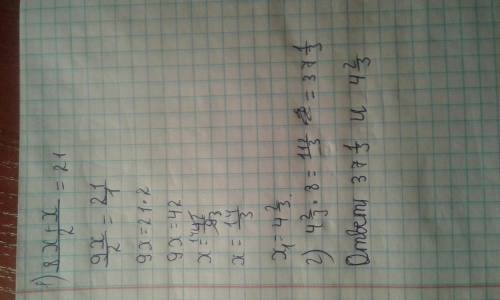 1) (8x+x)/2 = 21
9x/2 = 21/1
9x=21·2
9x=42
x= 42/9
x= 14/3
x₁=4 2/3.
2) 4 2/3 · 8 = 112/3 = 37 1/3
Ответ: 37 1/3 и 4 2/3